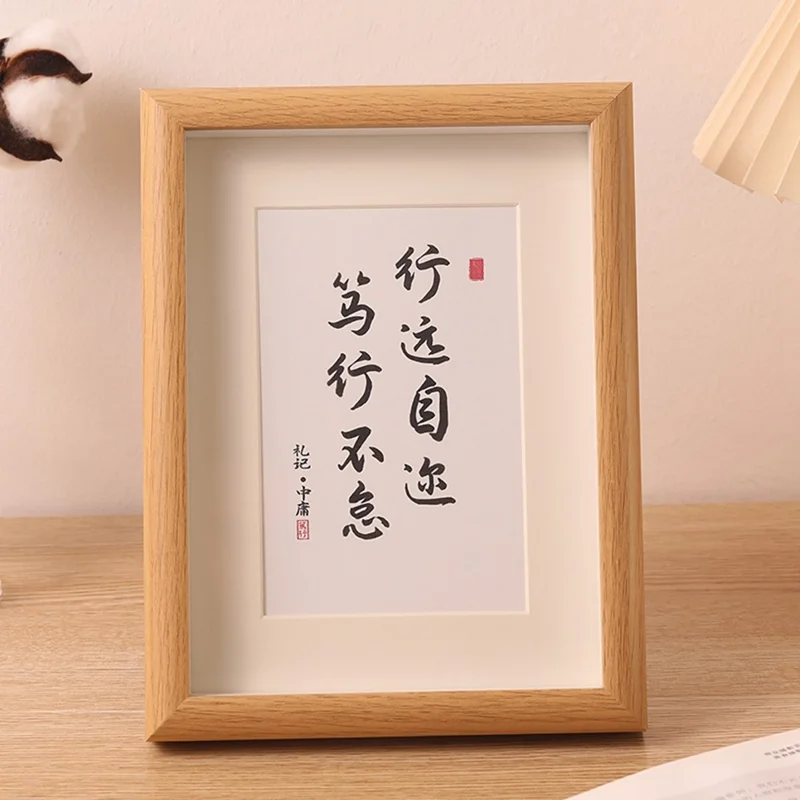 行远自迩
笃行不怠
礼记·中庸